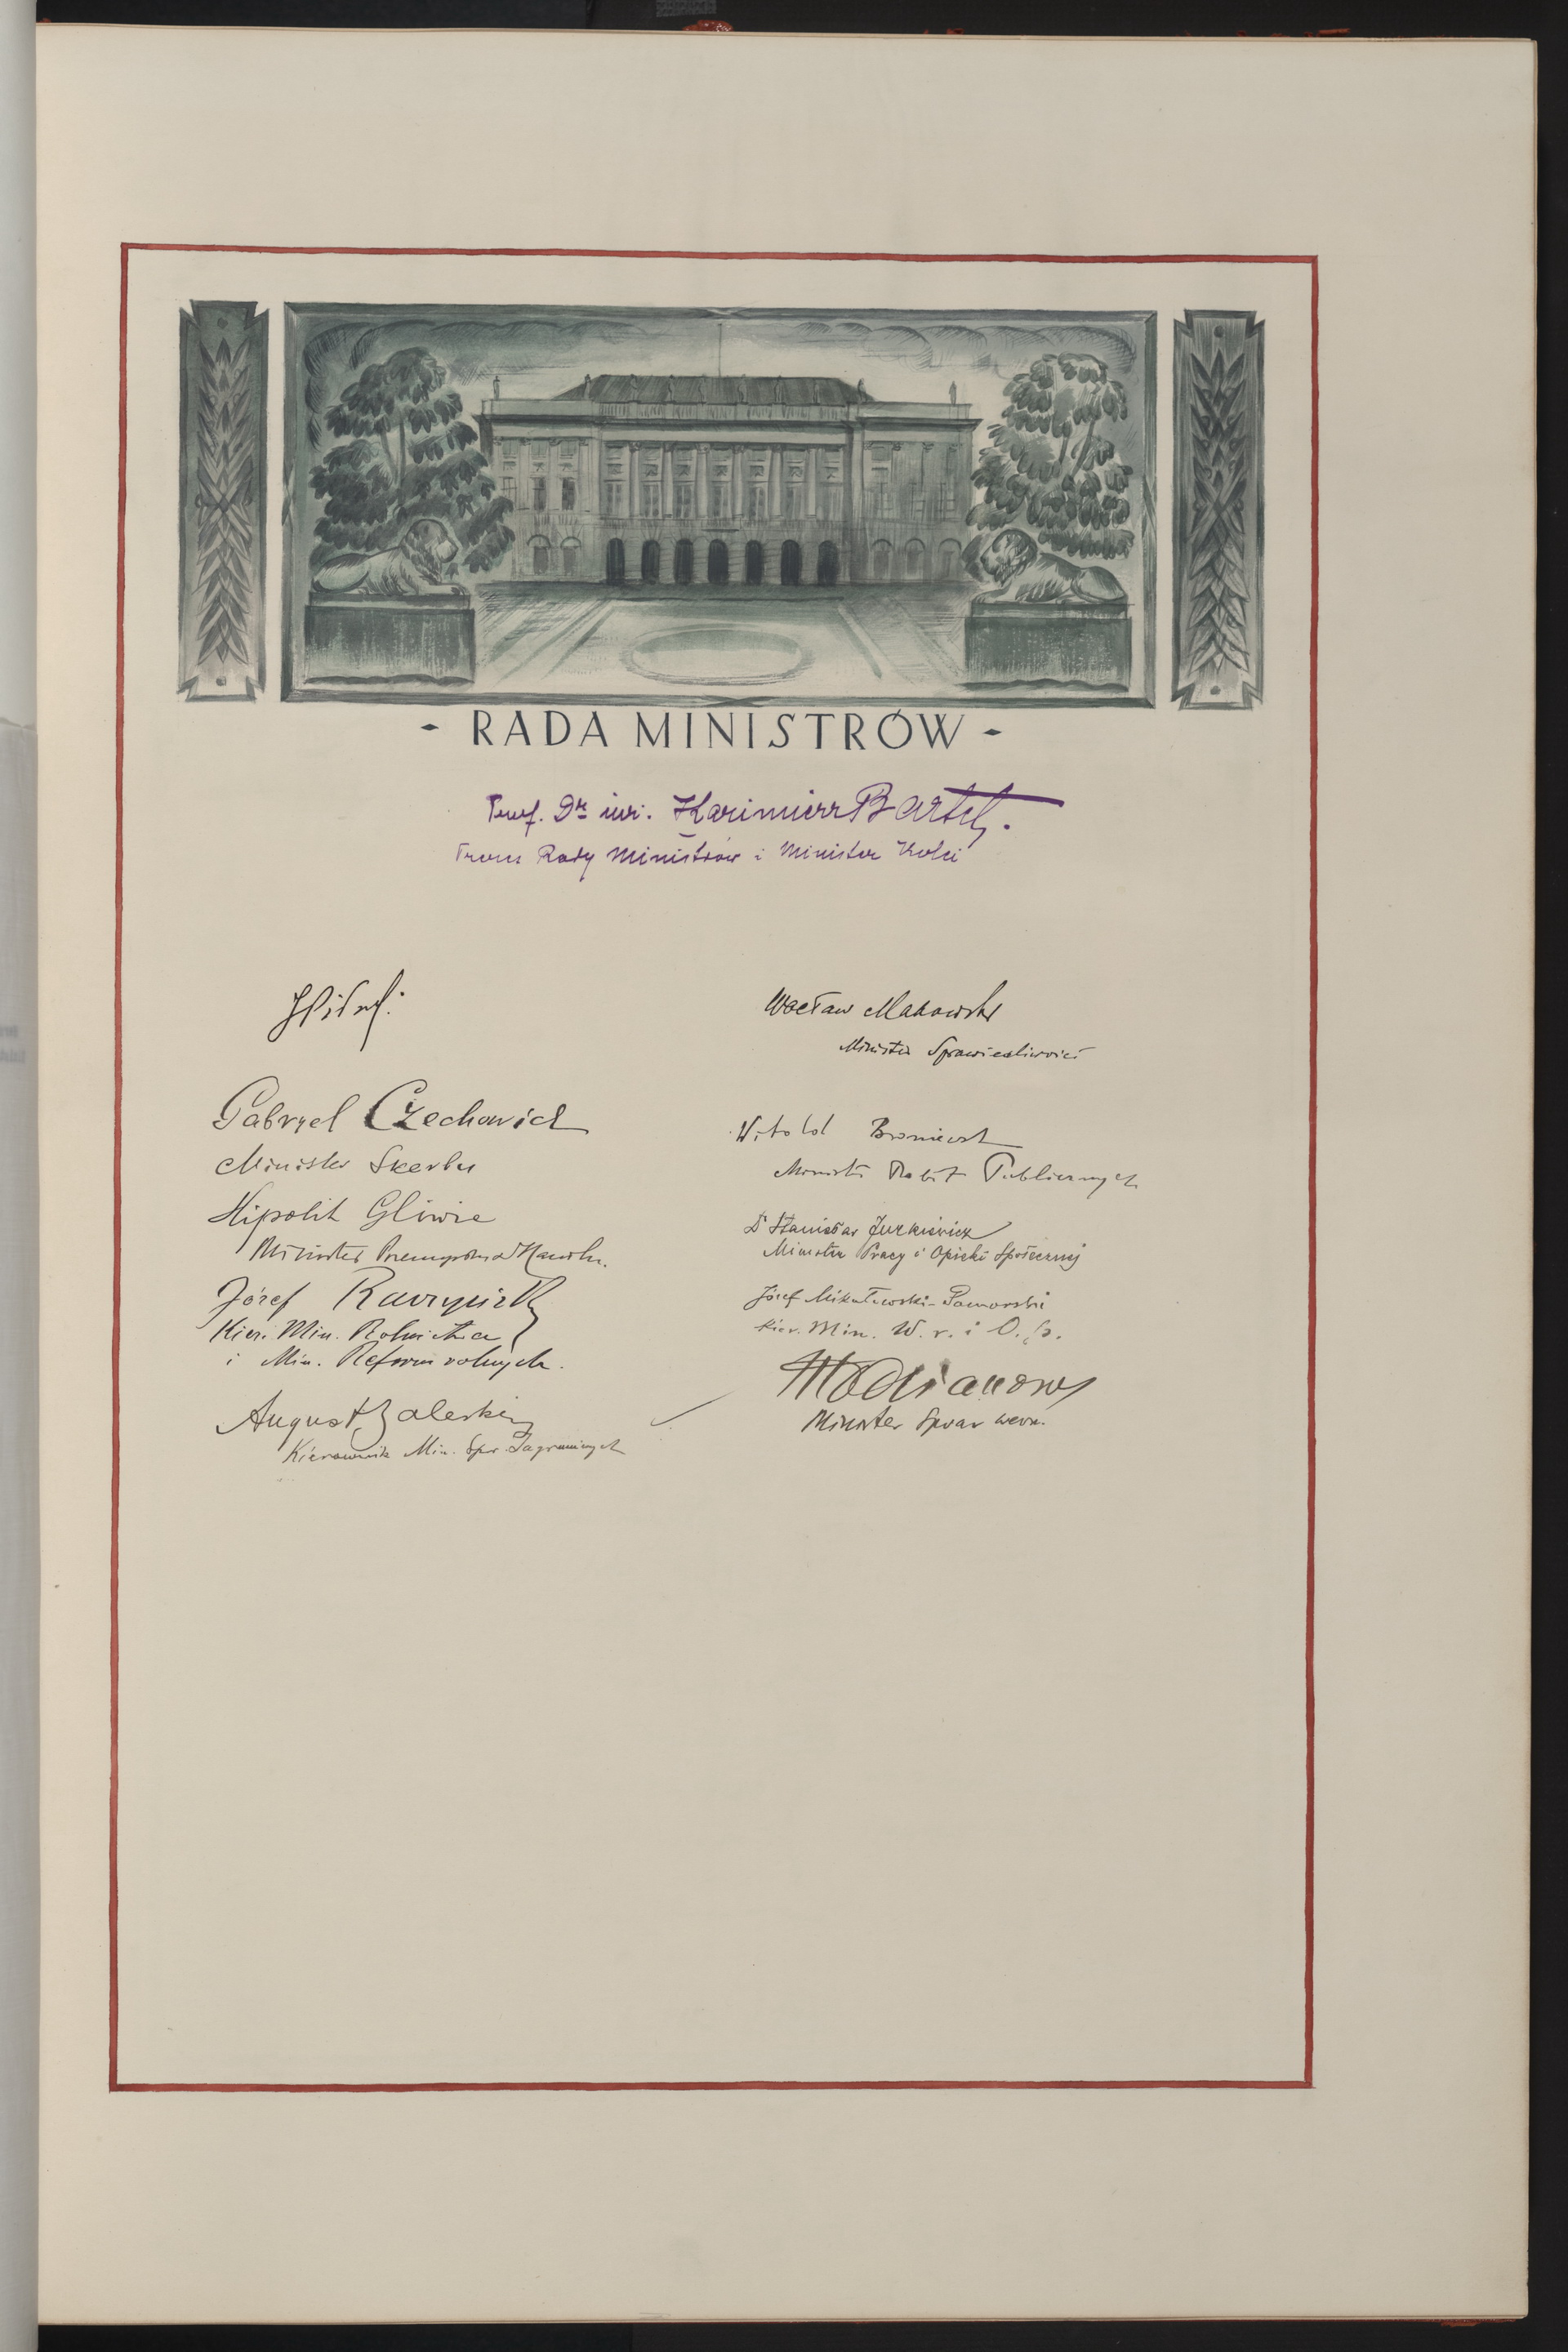 - RADA MINISTRÓW -
Prof. Dr inż. Kazimierz Bartel.
Prezes Rady Ministrów i Minister Kolei
JPiłsudski
Gabryel Czechowicz
Minister Skarbu
Hipolit Gliwic
Minister Przemysłu i Handlu.
Józef Raczyński
Kier. Min. Rolnictwa
i Min. Reform rolnych.
August Zaleski
Kierownik Min. Spr. Zagranicznych
Wacław Makowski
Minister Sprawiedliwości
Witold Broniewski
Minister Robót Publicznych
Dr Stanisław Jurkiewicz
Minister Pracy i Opieki Społecznej
Józef Mikułowski-Pomorski
Kier. Min. W. r. i O. p.
Młodzianowski
Minister Spraw wewn.